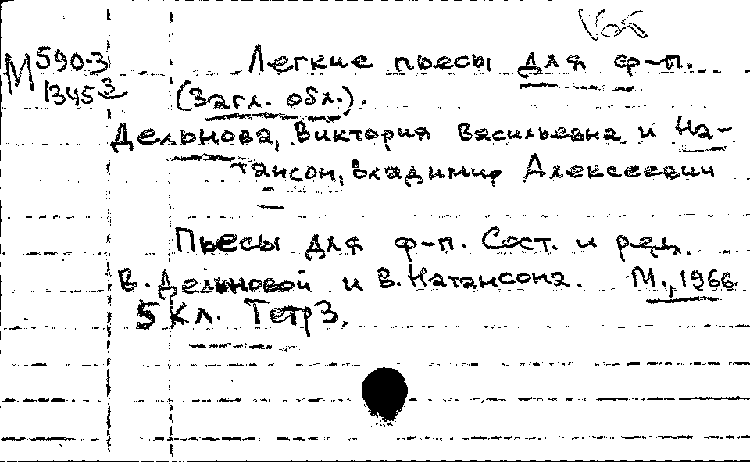 М 590-3 Легкие пьесы для ф-п.
1345 3 (Загл. обл.).
Дельнова, Виктория Васильевна и На-
тансон, Владимир Алексеевич
Пьесы для ф-п. Сост. и ред.
В. Дельновой и В. Натансона. М., 1966
5 Кл. Тетр 3.